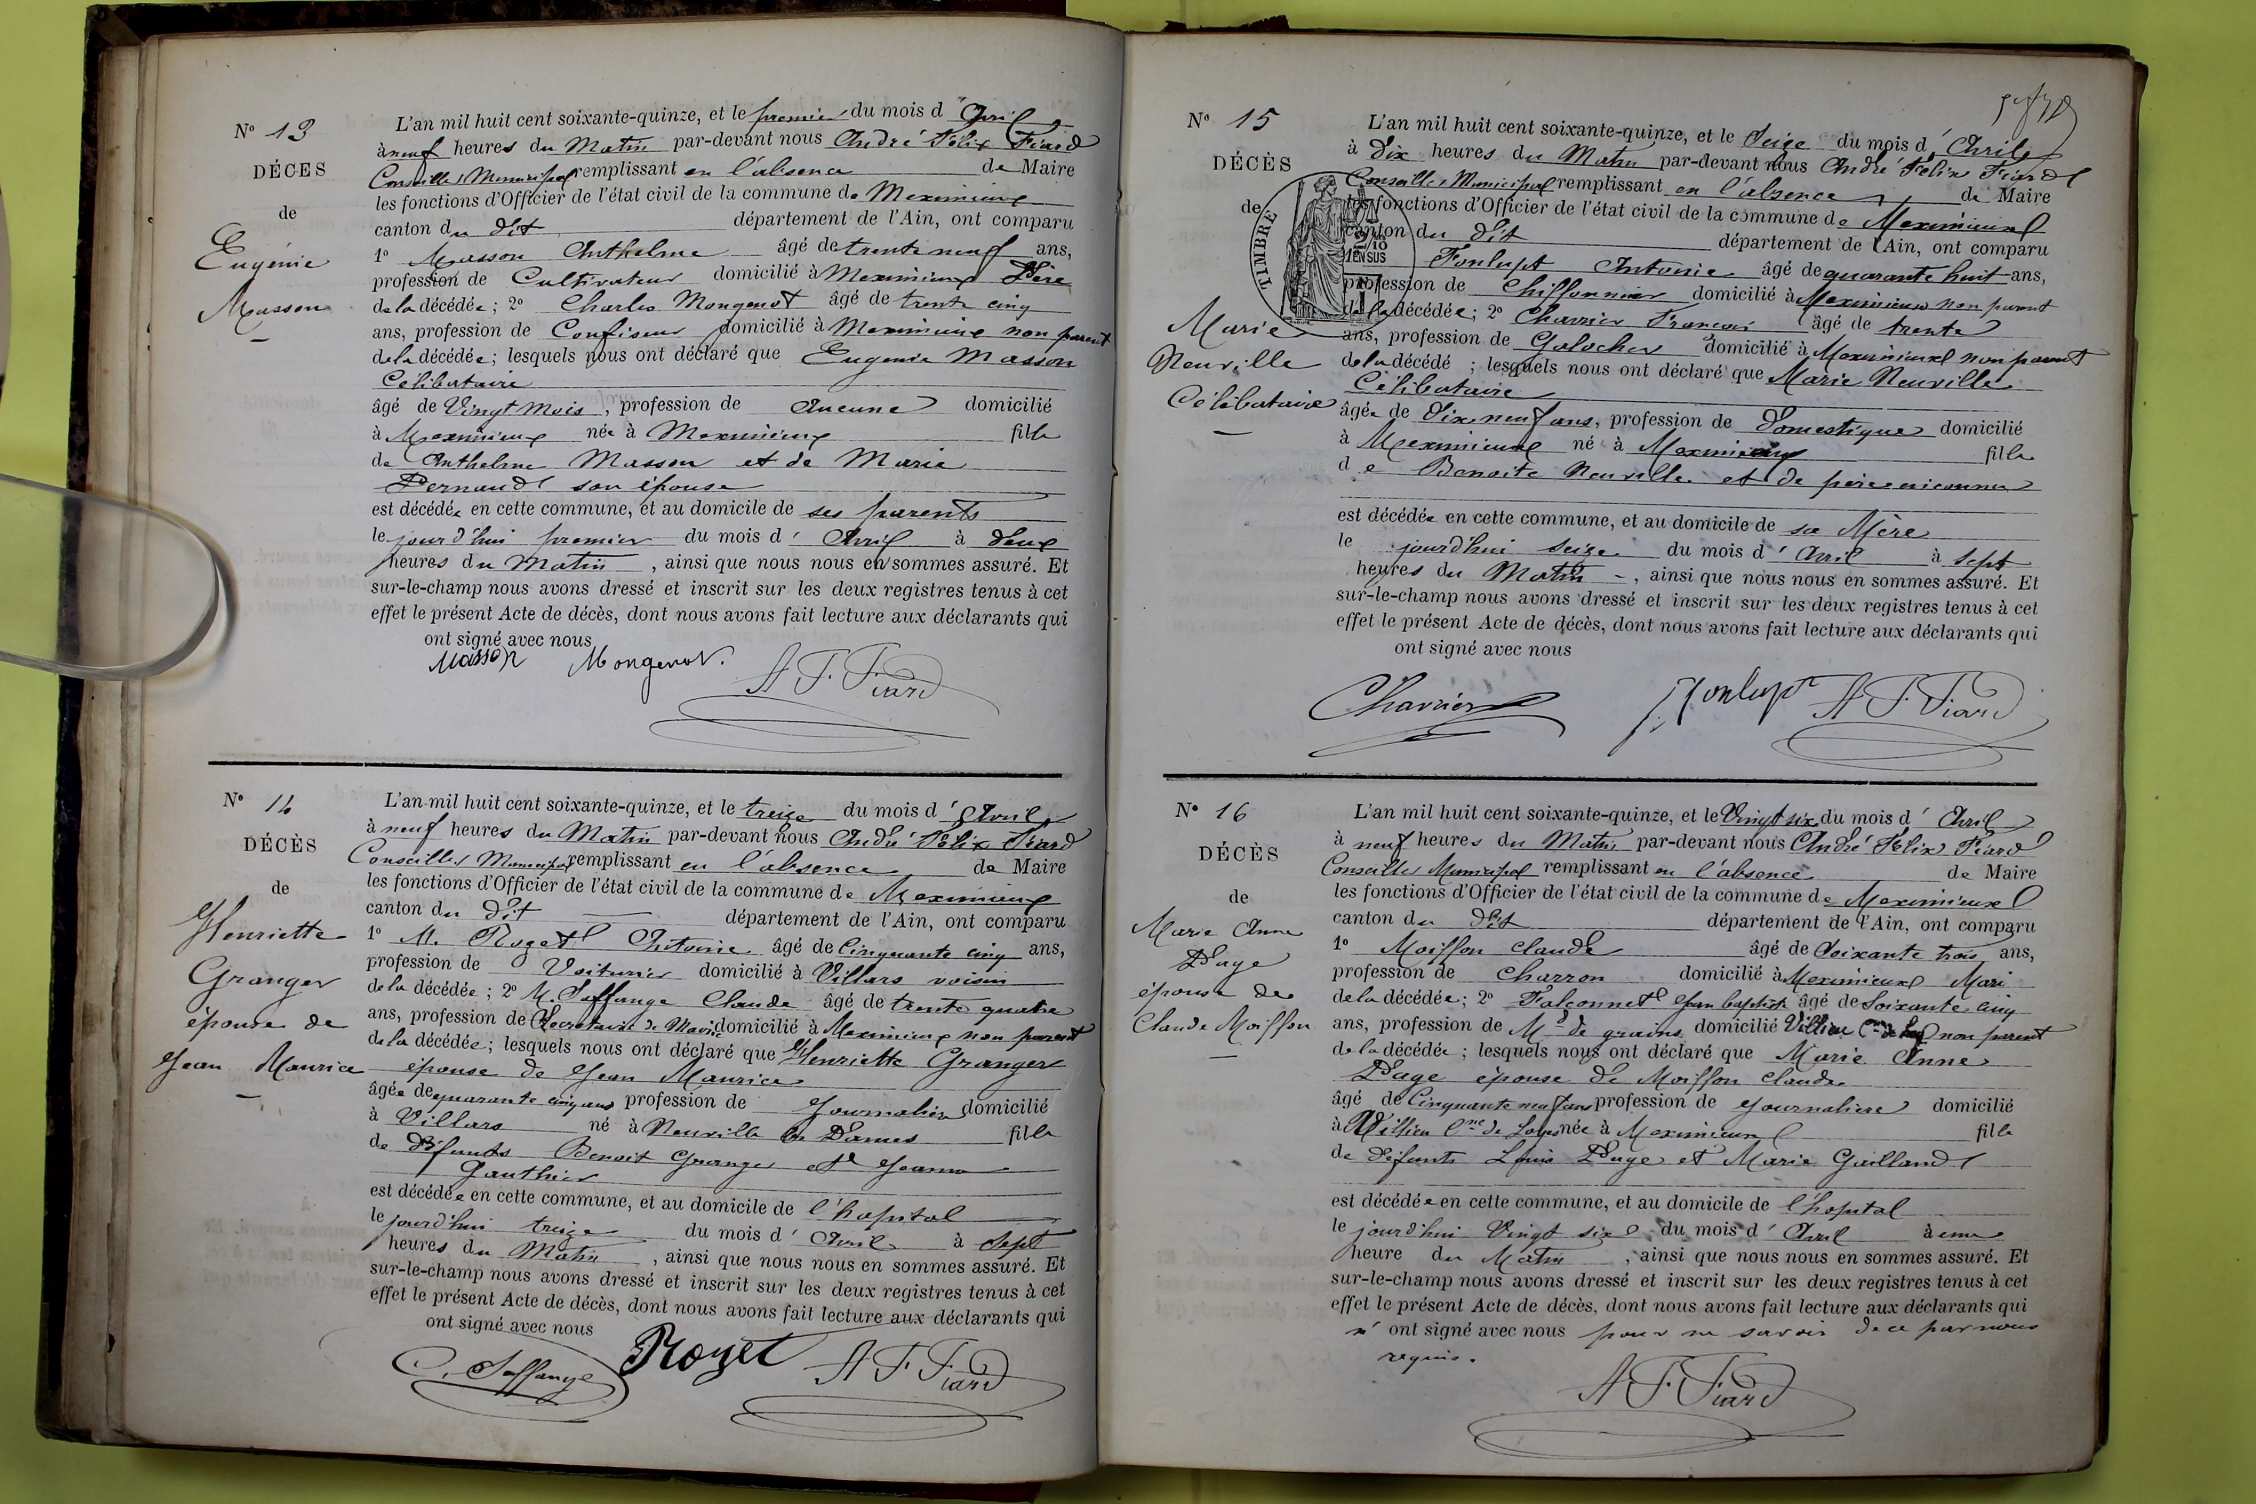 N° 13
DÉCES
de
Eugénie
Masson
L'an mil huit cent soixante-quinze, et le premier du mois d' Avril
à neuf heures du Matin par-devant nous André Félix Fiard
Conseiller Municipal remplissant en l'absence de Maire
les fonctions d'Officier de l'état civil de la commune de Meximieux
canton du dit département de l'Ain, ont comparu
1° Masson Anthelme âgé de trente neuf ans,
profession de Cultivateur domicilié à Meximieux Père
de la décédée; 2° Charles Mongenot âgé de trente cinq
ans, profession de Confiseur domicilié à Meximieux non parent
de la décédée; lesquels nous ont déclaré que Eugénie Masson
Célibataire
âgé de Vingt Mois, profession de Aucune domicilié
à Meximieux née à Meximieux fille
de Anthelme Masson et de Marie
Pernaud son épouse
est décédée en cette commune, et au domicile de ses parents
le jourd'hui premier du mois d' Avril à deux
heures du Matin, ainsi que nous nous en sommes assuré. Et
sur-le-champ nous avons dressé et inscrit sur les deux registres tenus à cet
effet le présent Acte de décès, dont nous avons fait lecture aux déclarants qui
ont signé avec nous
Masson Mongenot. A F. Fiard
N° 14
DÉCÈS
de
Henriette
Granger
épouse de
Jean Maurice
L'an mil huit cent soixante-quinze, et le treize du mois d' Avril
à neuf heures du Matin par-devant nous André Félix Fiard
Conseiller Municipal remplissant en l'absence de Maire
les fonctions d'Officier de l'état civil de la commune de Meximieux
canton du dit département de l'Ain, ont comparu
1° M. Rozet Antoine âgé de Cinquante cinq ans,
profession de Voiturier domicilié à Villars voisin
de la décédée; 2° M. Soffange Claude âgé de trente quatre
ans, profession de Secretaire de Mairie domicilié à Meximieux non parent
de la décédée; lesquels nous ont déclaré que Henriette Granger
épouse de Jean Maurice
âgée de quarante cinq ans profession de Journalière domicilié
à Villars né à Neuville les Dames fille
de défunts Benoit Granger et Jeanne
Gauthier
est décédée en cette commune, et au domicile de l'hopital
le jourd'hui treize du mois d' Avril à Sept
heures du Matin, ainsi que nous nous en sommes assuré. Et
sur-le-champ nous avons dressé et inscrit sur les deux registres tenus à cet
effet le présent Acte de décès, dont nous avons fait lecture aux déclarants qui
ont signé avec nous
C. Soffange Rozet A F. Fiard
N° 15
DÉCÈS
de
Marie
Neuville
Célibataire
TIMBRE
2/10
EN SUS
L'an mil huit cent soixante-quinze, et le Seize du mois d' Avril
à Dix heures du Matin par-devant nous André Félix Fiard
Conseiller Municipal remplissant en l'absence de Maire
les fonctions d'Officier de l'état civil de la commune de Meximieux
canton du dit département de l'Ain, ont comparu
Fonlupt Antoine âgé de quarante huit ans,
profession de Chiffonnier domicilié à Meximieux non parent
de la décédée; 2° Charrier Francois âgé de trente
ans, profession de Galocher domicilié à Meximieux non parent
de la décédé; lesquels nous ont déclaré que Marie Neuville
Célibataire
âgée de dix neuf ans, profession de Domestique domicilié
à Meximieux né à Meximieux fille
de Benoite Neuville et de père inconnu
est décédée en cette commune, et au domicile de sa Mère
le jourd'hui seize du mois d' Avril à sept
heures du Matin, ainsi que nous nous en sommes assuré. Et
sur-le-champ nous avons dressé et inscrit sur les deux registres tenus à cet
effet le présent Acte de décès, dont nous avons fait lecture aux déclarants qui
ont signé avec nous
Charrier Fonlupt A F. Fiard
N° 16
DÉCÈS
de
Marie Anne
Page
épouse de
Claude Moiffon
L'an mil huit cent soixante-quinze, et le Vingt six du mois d' Avril
à neuf heures du Matin par-devant nous André Félix Fiard
Conseiller Municipal remplissant en l'absence de Maire
les fonctions d'Officier de l'état civil de la commune de Meximieux
canton du dit département de l'Ain, ont comparu
1° Moiffon Claude âgé de Soixante trois ans,
profession de Charron domicilié à Meximieux Mari
de la décédée; 2° Falconnet Jean baptiste âgé de Soixante cinq
ans, profession de Md de grains domicilié Villieu non parent
de la décédée; lesquels nous ont déclaré que Marie Anne
Page épouse de Moiffon Claude
âgé de Cinquante neuf ans profession de Journalière domicilié
à Villieu Cne de Loyes née à Meximieux fille
de défunts Louis Page et Marie Gailland
est décédée en cette commune, et au domicile de l'hopital
le jourd'hui Vingt six du mois d' Avril à une
heure du Matin, ainsi que nous nous en sommes assuré. Et
sur-le-champ nous avons dressé et inscrit sur les deux registres tenus à cet
effet le présent Acte de décès, dont nous avons fait lecture aux déclarants qui
n' ont signé avec nous pour ne savoir de ce par nous
requis.
A F. Fiard